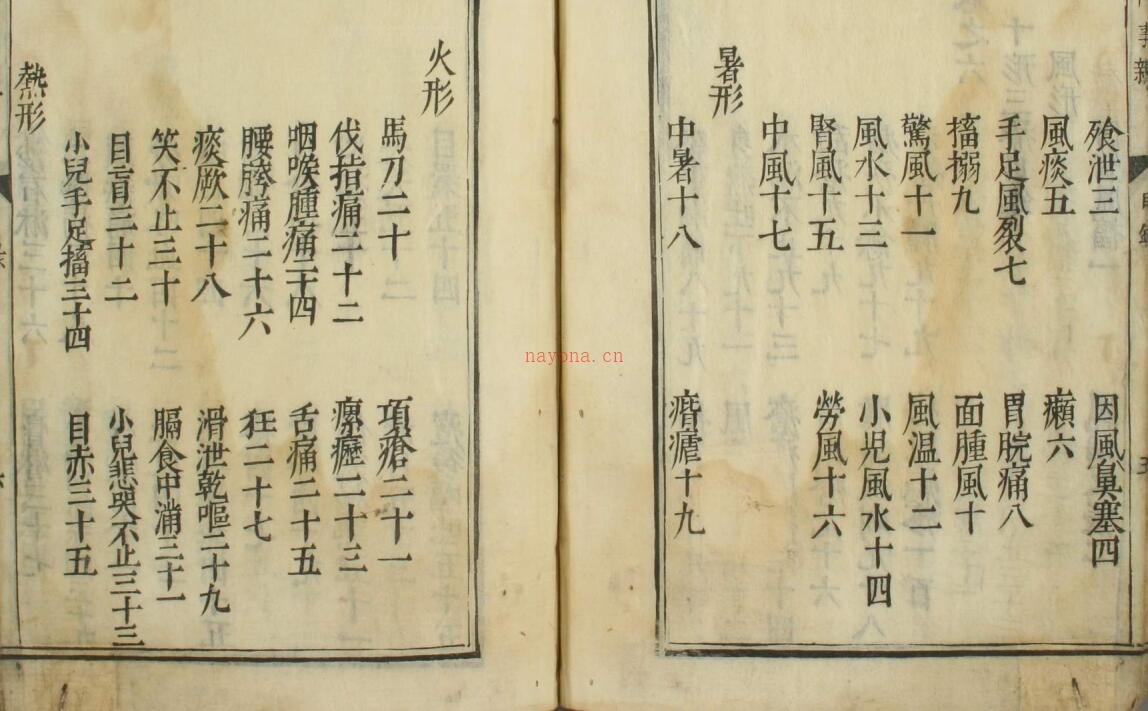 飱泄三
因風鼻塞四
風痰五
癩六
手足風裂七
胃脘痛八
搐搦九
面腫風十
驚風十一
風温十二
風水十三
小児風水十四
腎風十五
勞風十六
中風十七
暑形
中暑十八
㾬瘧十九
火形
馬刀二十
項瘡二十一
伐指痛二十二
瘰癧二十三
咽喉腫痛二十四
舌痛二十五
腰胯痛二十六
狂二十七
痰厥二十八
滑泄乾嘔二十九
笑不止三十
膈食中滿三十一
目盲三十二
小兒悲哭不止三十三
小兒手足搐三十四
目赤三十五
熱形
nayona.cn